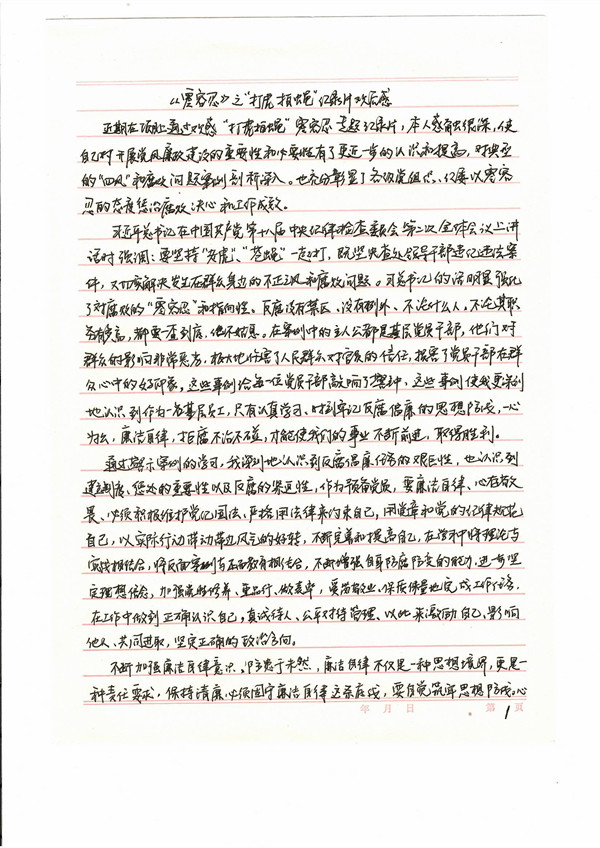 《零容忍》之“打虎拍蝇”纪录片观后感
近期在项上通过观感“打虎拍蝇”零容忍专题纪录片，本人感触很深，使
自己对开展党风廉政建设的重要性和必要性有了更进一步的认识和提高，对典型
的“四风”和腐败问题案例剖析深入。也充分彰显了各级党组织、纪委以零容
忍的态度惩治腐败决心和工作成效。
习近平总书记在中国共产党第十八届中央纪律检查委员会第二次全体会议上讲
话时强调：要坚持“老虎”、“苍蝇”一起打，既坚决查处领导干部违纪违法案
件，又切实解决发生在群众身边的不正之风和腐败问题。习总书记的话明显强化
了对腐败的“零容忍”和指向性、反腐没有禁区、没有例外、不论什么人，不论其职
务有多高，都要一查到底、绝不姑息。在案例中的主人公都是基层党员干部，他们对
群众的影响非常恶劣，极大地伤害了人民群众对官员的信任，损害了党员干部在群
众心中的好印象，这些事例给每一位党员干部敲响了警钟，这些事例使我更深刻
地认识到作为一名基层员工，只有认真学习、时刻牢记反腐倡廉的思想防线，一心
为公，廉洁自律，拒腐不沾不碰，才能使我们的事业不断前进，取得胜利。
通过警示案例的学习，我深刻地认识到反腐倡廉任务的艰巨性，也认识到
建制度、惩处的重要性以及反腐的紧迫性，作为预备党员，要廉洁自律、心存敬
畏、必须积极维护党纪国法、严格用法律来约束自己，用党章和党的纪律规范
自己，以实际行动带动身边风气的好转，不断完善和提高自己，在学习中将理论与
实践相结合，将反面案例与正面教育相结合，不断增强自身防腐防变的能力，进一步坚
定理想信念，加强党性修养、重品行、做表率，爱岗敬业、保质保量地完成工作任务，
在工作中做到正确认识自己，真诚待人、公平对待管理、以此来激励自己、影响
他人、共同进取，坚定正确的政治方向。
不断加强廉洁自律意识、防患于未然，廉洁自律不仅是一种思想境界，更是一
种责任要求，保持清廉必须固守廉洁自律这条底线，要自觉筑牢思想防线。心
年 月 日 第 1 頁